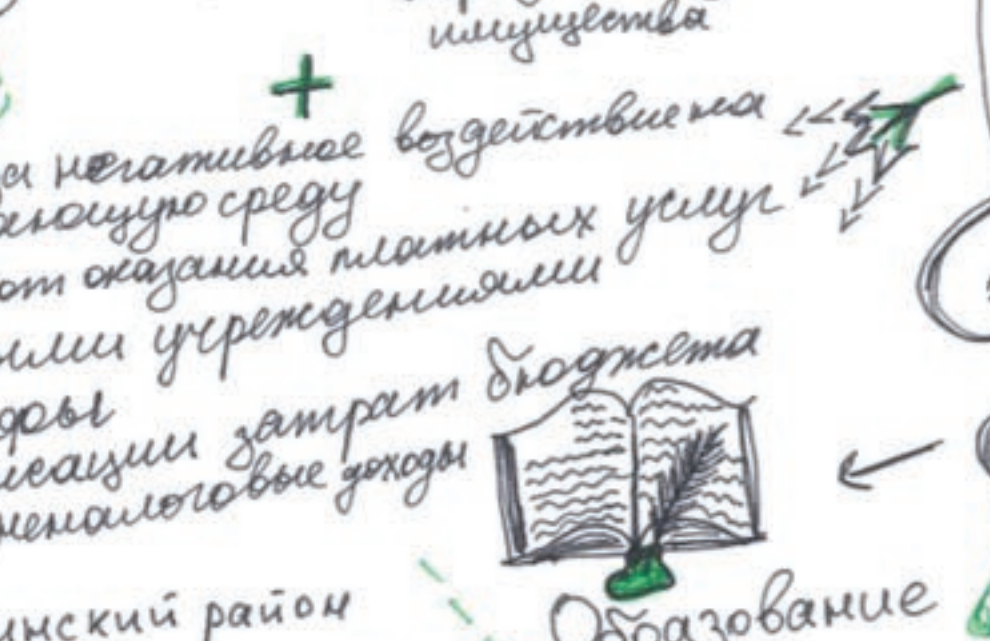 имущества
+
за негативное воздействие на
ающую среду
от оказания платных услуг
ными учреждениями
фы
нсации затрат бюджета
неналоговые доходы
инский район
Образование